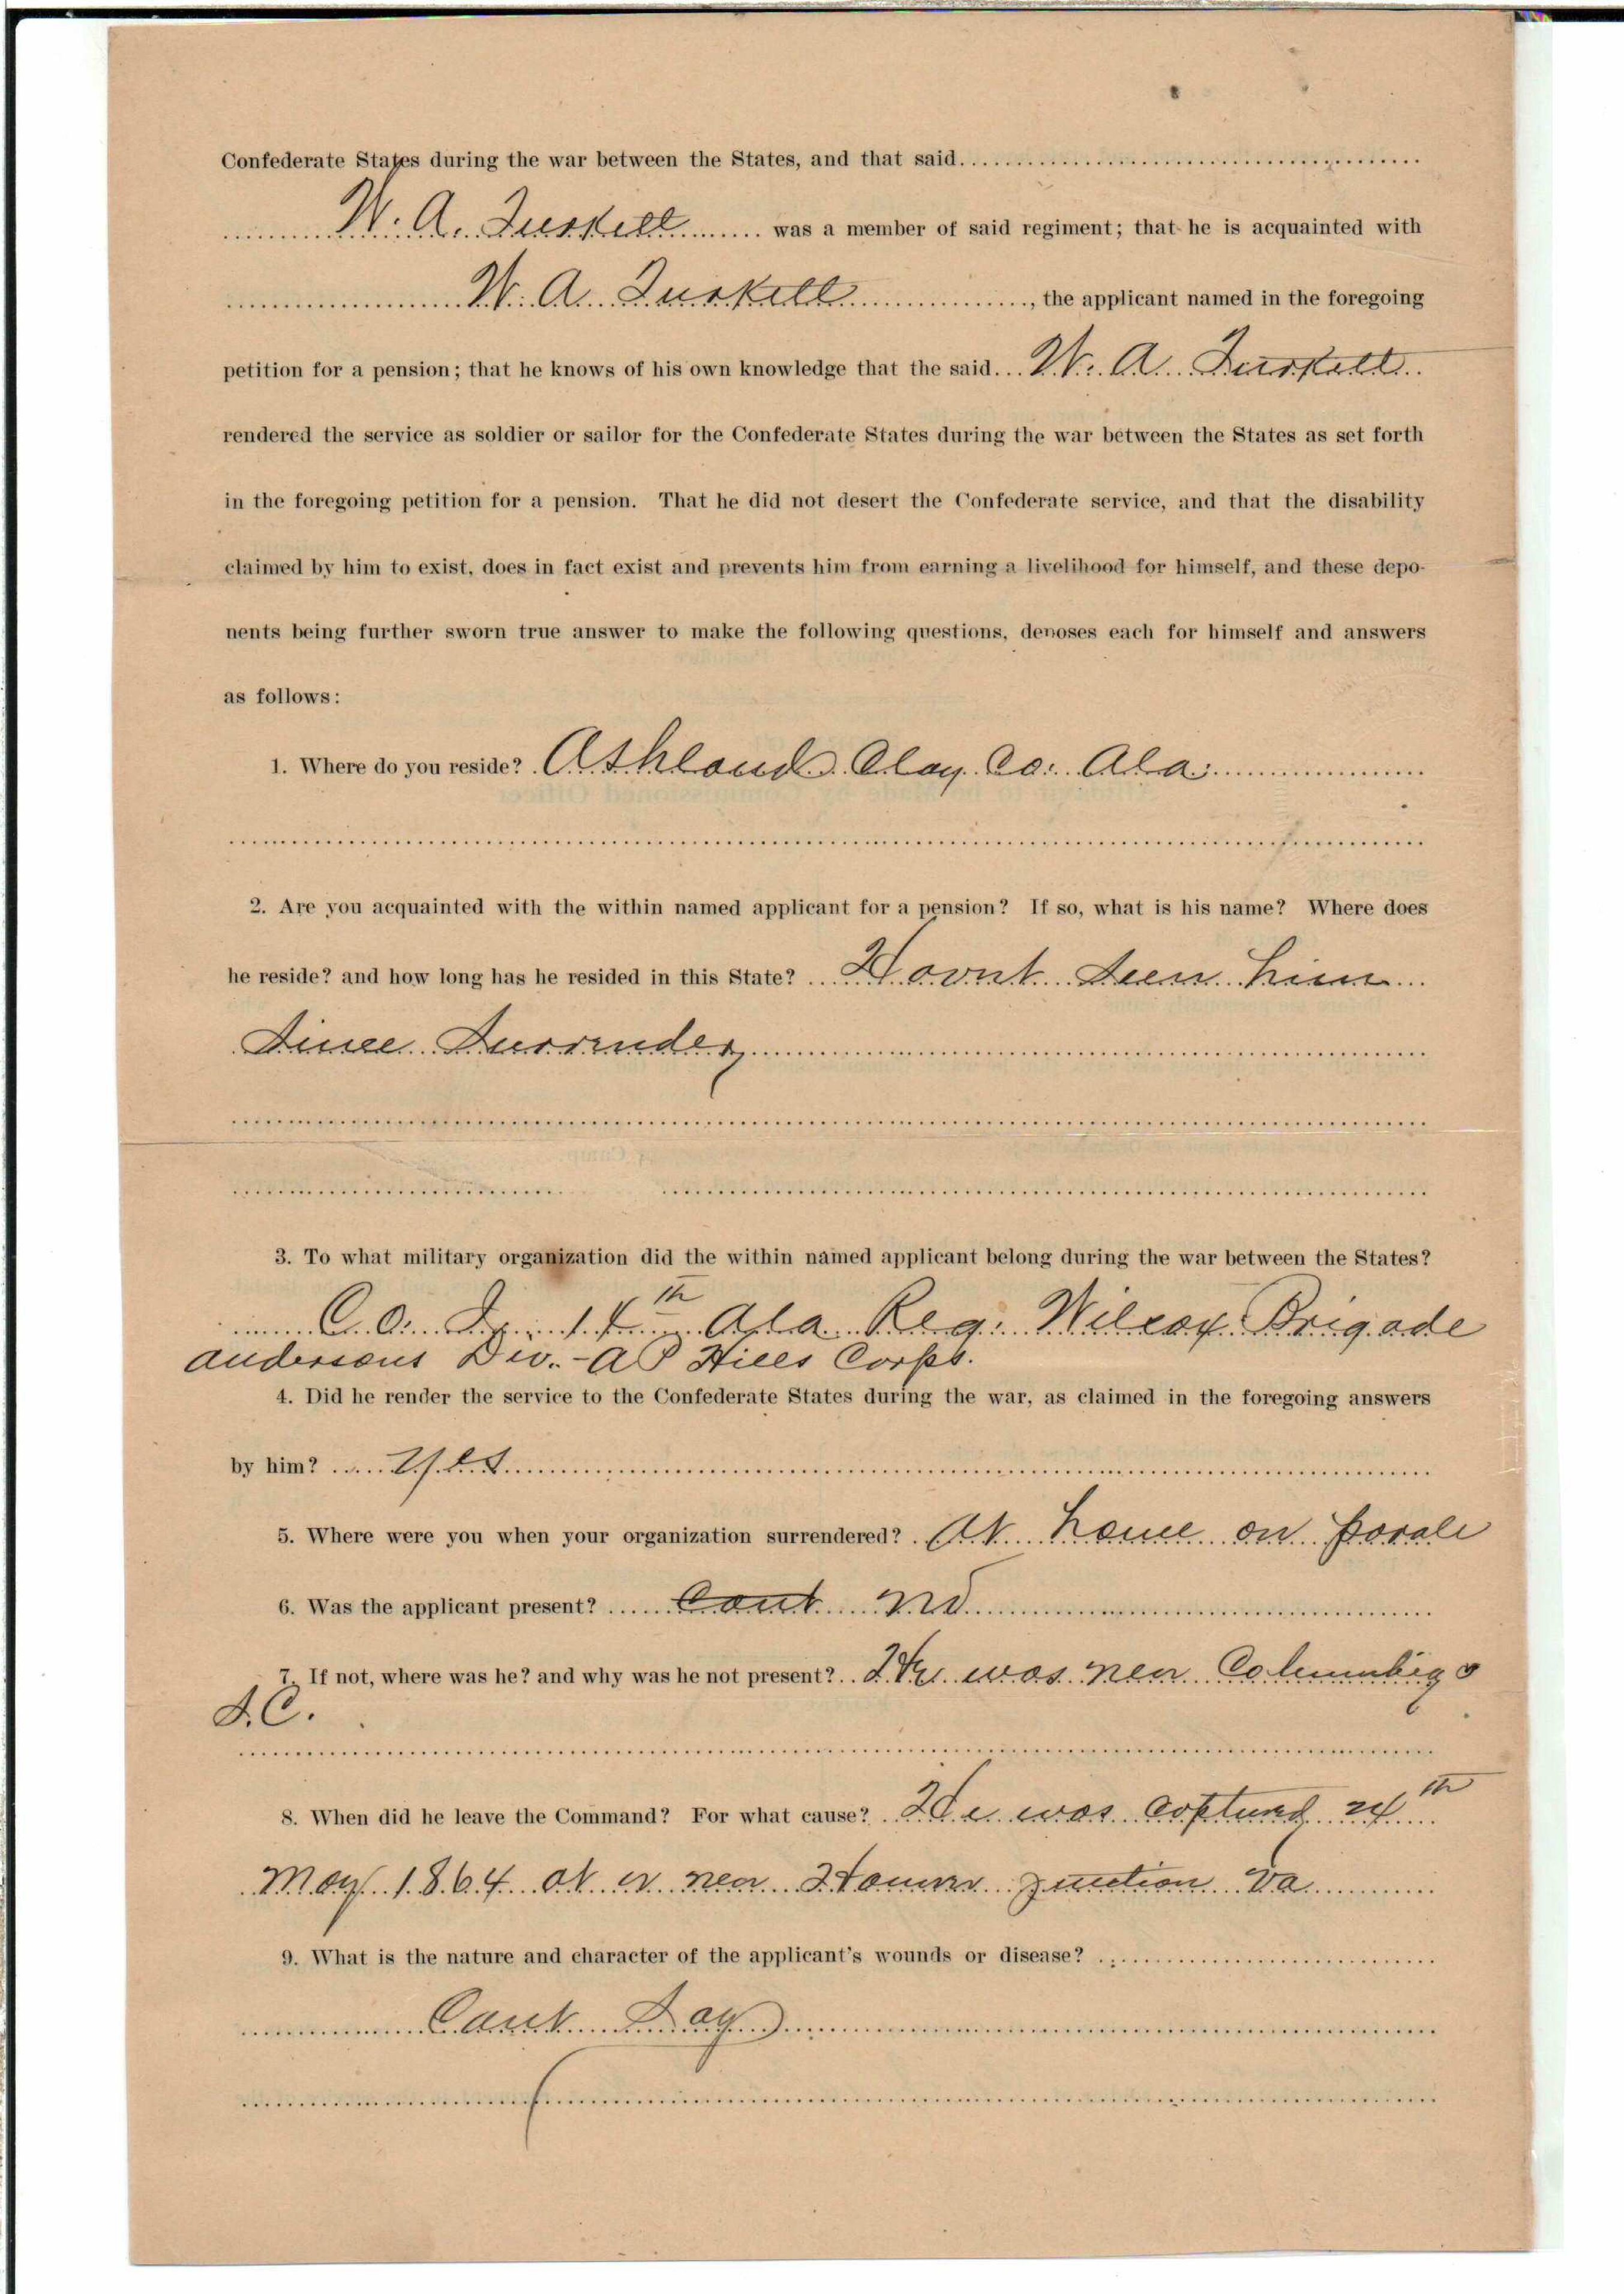 Confederate States during the war between the States, and that said
W. A. was a member of said regiment; that he is acquainted with
W. A. , the applicant named in the foregoing
petition for a pension; that he knows of his own knowledge that the said W. A.
rendered the service as soldier or sailor for the Confederate States during the war between the States as set forth
in the foregoing petition for a pension. That he did not desert the Confederate service, and that the disability
claimed by him to exist, does in fact exist and prevents him from earning a livelihood for himself, and these depo-
nents being further sworn true answer to make the following questions, deposes each for himself and answers
as follows:
1. Where do you reside? Ashland Clay Co. Ala.
2. Are you acquainted with the within named applicant for a pension? If so, what is his name? Where does
he reside? and how long has he resided in this State? Havnt Seen him
Since Surrender
3. To what military organization did the within named applicant belong during the war between the States?
C.O. 14th Ala. Reg. Wilcox Brigade
Andersons Div. - A P Hills Corps.
4. Did he render the service to the Confederate States during the war, as claimed in the foregoing answers
by him? Yes
5. Where were you when your organization surrendered? At home on parole
6. Was the applicant present? Cant No
7. If not, where was he? and why was he not present? He was near Columbia
S.C.
8. When did he leave the Command? For what cause? He was Captured 24th
May 1864 at or near Hanover Junction Va
9. What is the nature and character of the applicant's wounds or disease?
Cant Say